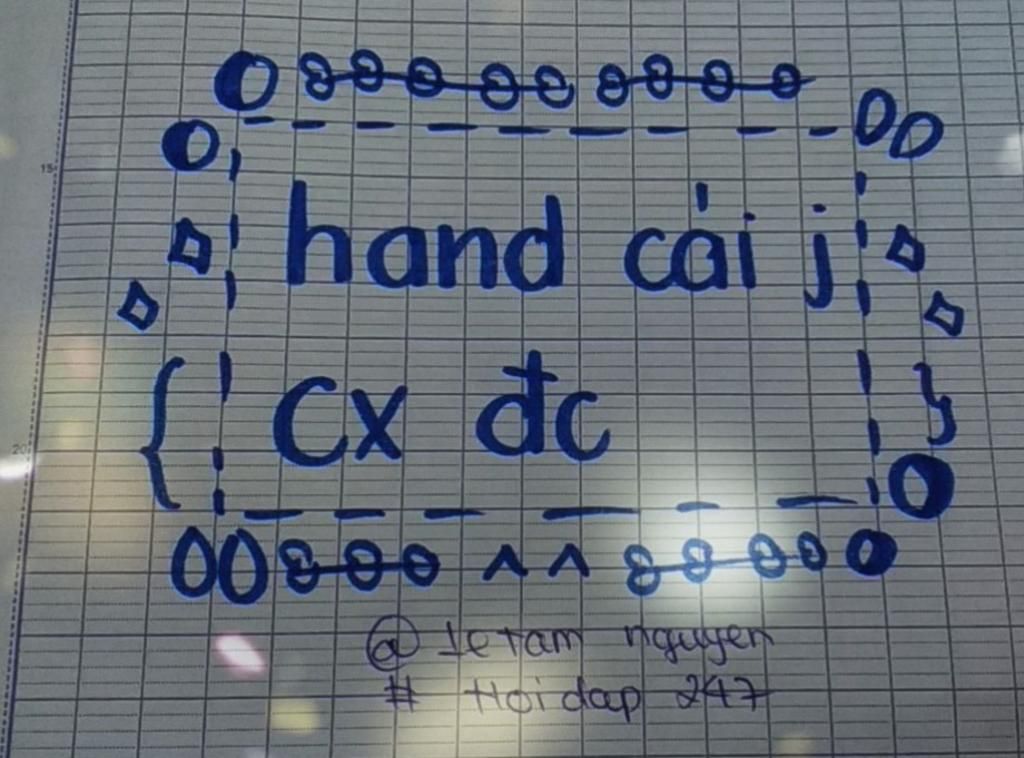 hand cái j
cx đc
@ letam nguyen
# Hoidap 247
15
20